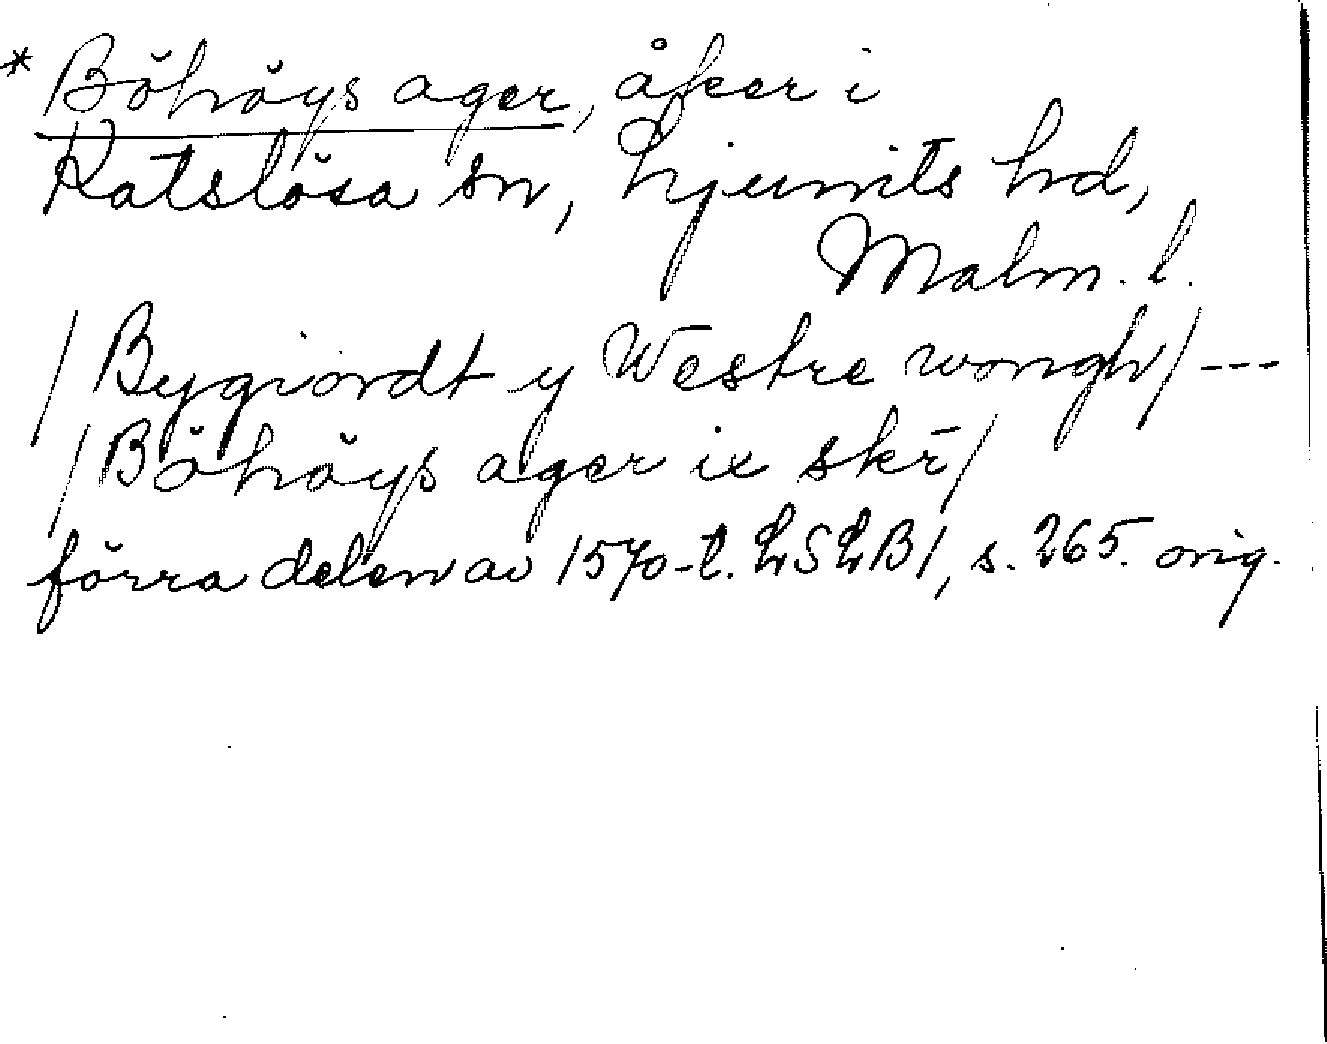 * Böhöys ager, åker i
Katslösa sn, Ljunits hd,
Malm. l.
/Bygiordt y Westre wongh/ ---
/Böhöys ager ix skr̄/
förra delen av 1570-t. LSLB1, s. 265. orig.